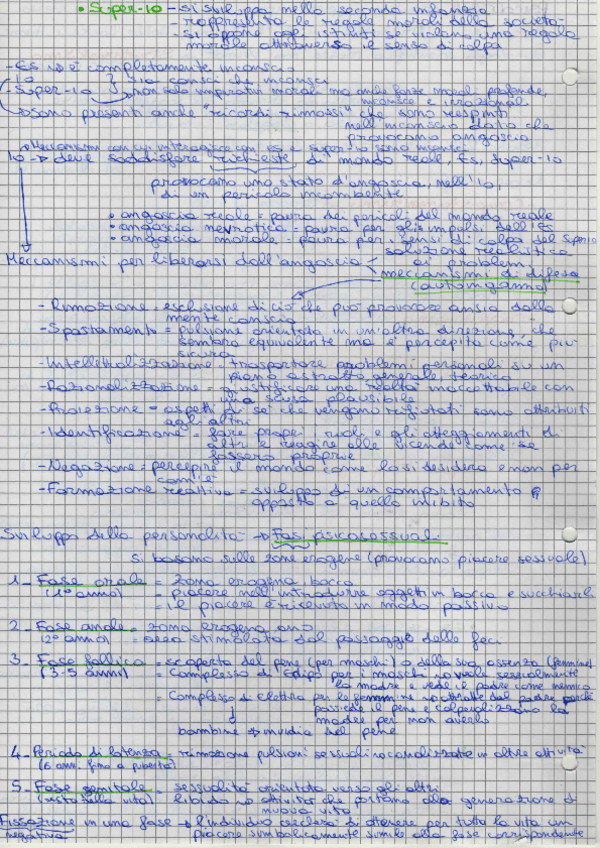 • Super-io - si sviluppa nella seconda infanzia
- rappresenta le regole morali della società
- si oppone agli istinti se violano una regola
morale attraverso il senso di colpa
- Es è completamente inconscio
- Io } sia consci che inconsci
- Super-io non solo imperativi morali ma anche forze morali profonde,
inconsce e irrazionali
sono presenti anche "ricordi rimossi" che sono respinti
nell'inconscio dato che
provocano angoscia
Meccanismi con cui interagisce con es e super io sono inconsci
Io → deve soddisfare richieste di mondo reale, Es, super-io
provocano uno stato d'angoscia, nell'io,
di un pericolo incombente
• angoscia reale = paura dei pericoli del mondo reale
• angoscia nevrotica = paura per gli impulsi dell'Es
• angoscia morale = paura per i sensi di colpa del superio
soluzione realistica
ai problemi
Meccanismi per liberarsi dall'angoscia
meccanismi di difesa
(autoinganno)
- Rimozione = esclusione di ciò che può provocare ansia dalla
mente conscia
- Spostamento = pulsione orientata in un'altra direzione, che
sembra equivalente ma è percepita come più
sicura
- Intellettualizzazione = trasportare problemi personali su un
piano astratto, generale, teorico
- Razionalizzazione = giustificare una realtà inaccettabile con
una scusa plausibile
- Proiezione = aspetti di sé che vengono rifiutati sono attribuiti
agli altri
- Identificazione = fare propri ruoli e gli atteggiamenti di
altri e reagire alle vicende come se
fossero proprie
- Negazione = percepire il mondo come lo si desidera e non per
com'è
- Formazione reattiva = sviluppo di un comportamento
opposto a quello inibito
Sviluppo della personalità → Fasi psicosessuali
Si basano sulle zone erogene (provocano piacere sessuale)
1 - Fase orale = zona erogena, bocca
(1° anno) = piacere nell'introdurre oggetti in bocca e succhiarli
= il piacere è ricevuto in modo passivo
2 - Fase anale = zona erogena ano
(2° anno) = area stimolata dal passaggio delle feci
3 - Fase fallica = scoperta del pene (per maschi) o della sua assenza (femmine)
(3-5 anni) = Complesso di Edipo per i maschi vuole sessualmente
la madre e vede il padre come nemico
= Complesso di Elettra per le femmine attratte dal padre perché
possiede il pene e colpevolizzano la
madre per non averlo
bambine → invidia del pene
4 - Periodo di latenza = rimozione pulsioni sessuali canalizzate in altre attività
(6 anni fino a pubertà)
5 - Fase genitale = sessualità orientata verso gli altri
(resto della vita) libido attività che portano alla generazione di
nuova vita
Fissazione in una fase → l'individuo cercherà di ottenere per tutta la vita un
negativa piacere simbolicamente simile alla fase corrispondente